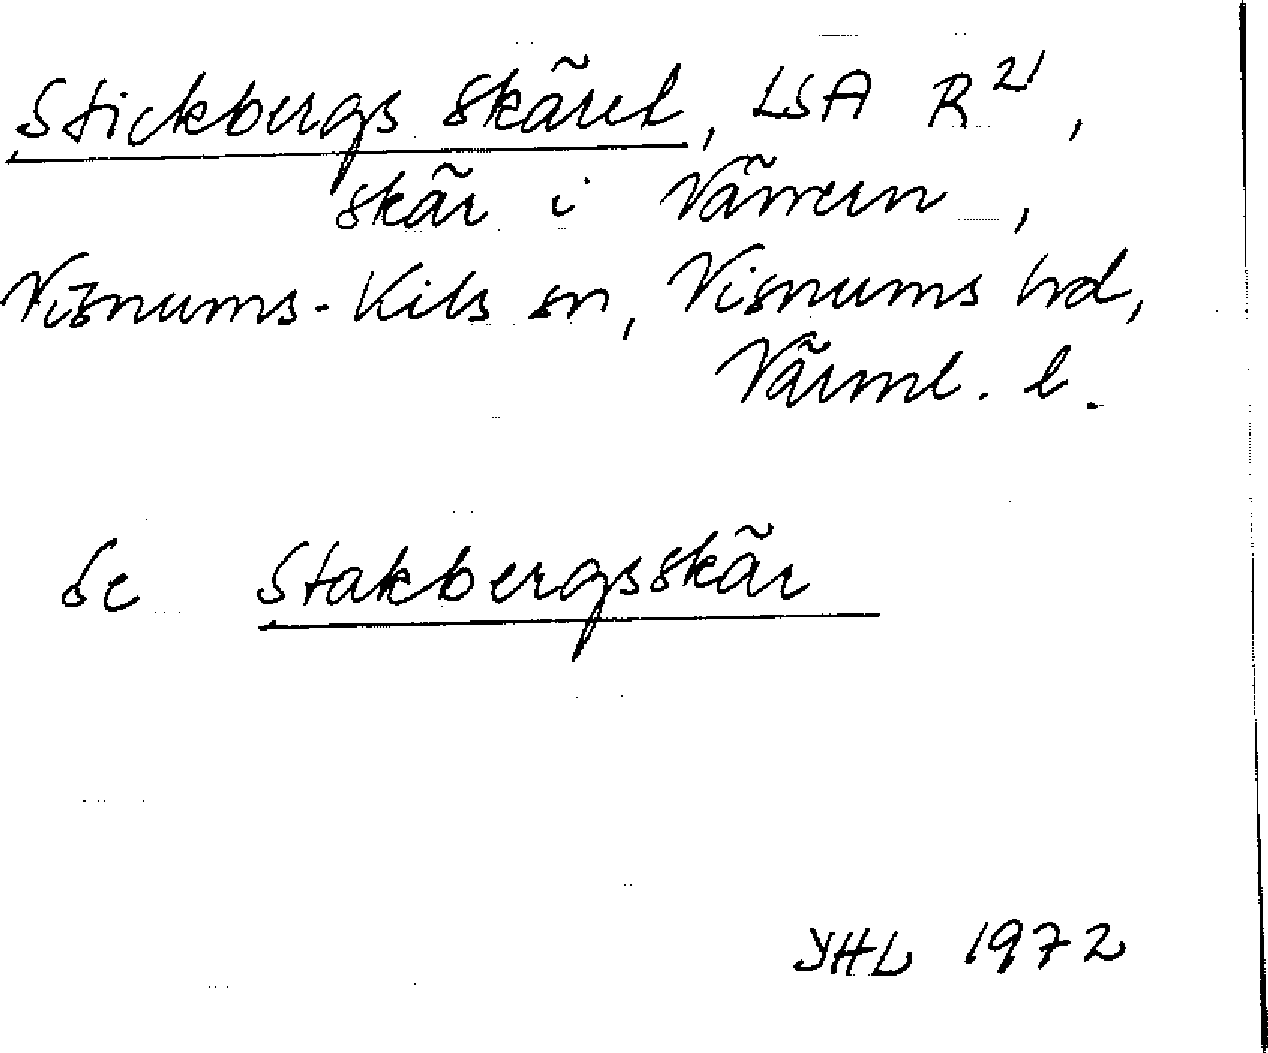 Stickbergs Skäret, LSA R 21,
skär i Vänern,
Visnums-Kils sn, Visnums hd,
Värml. l.
Se Stakbergsskär
YHL 1972